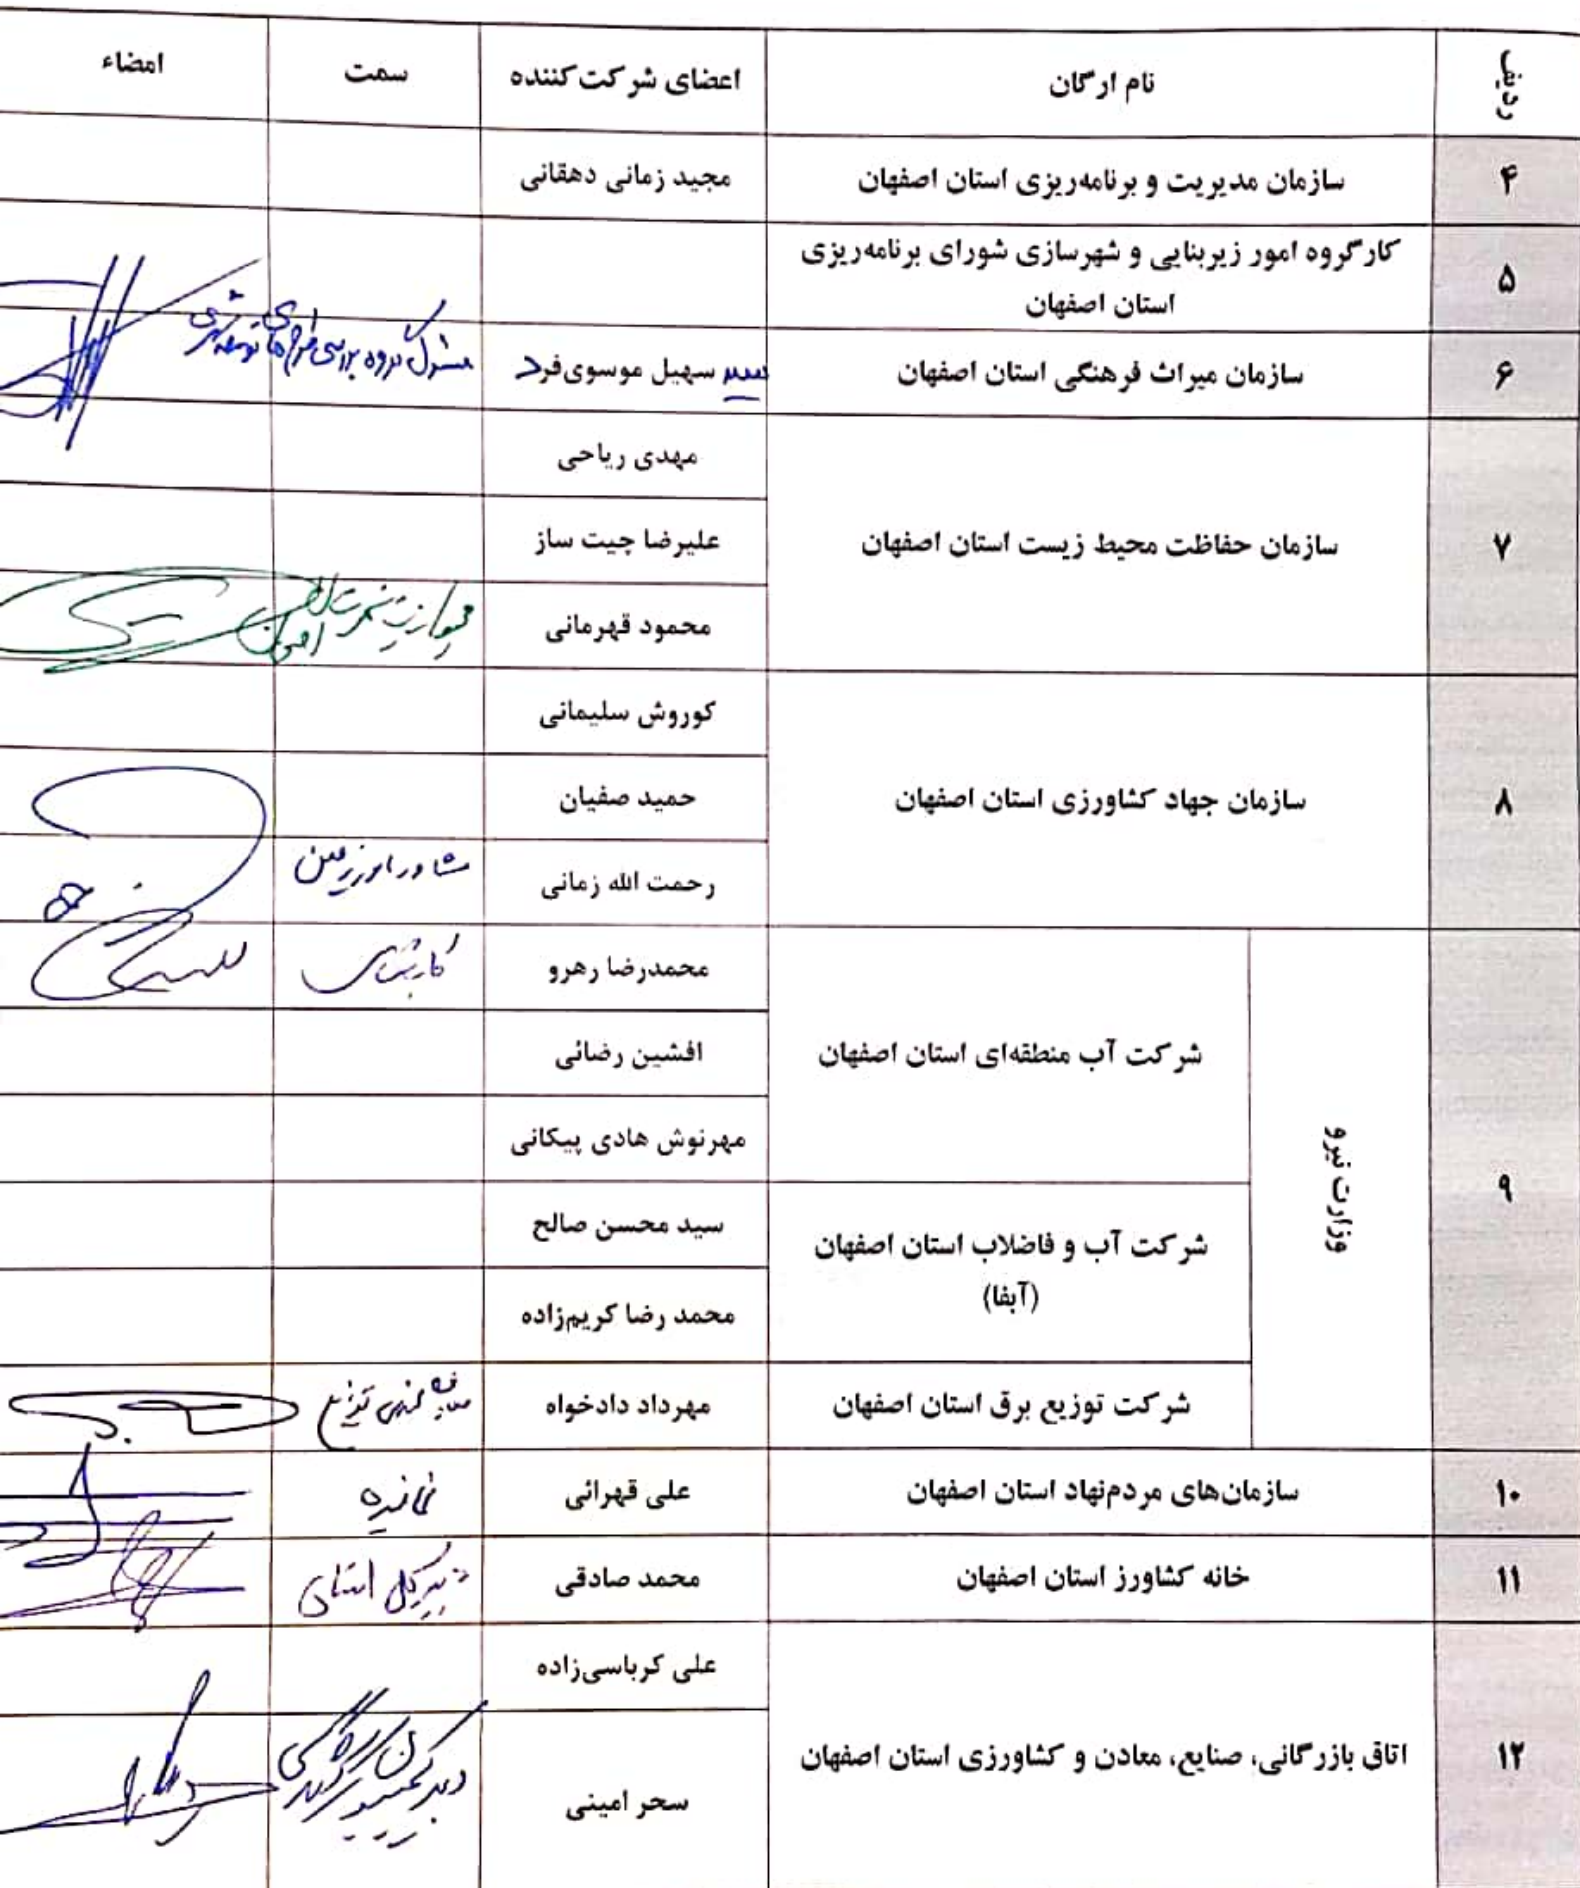 ردیف نام ارگان اعضای شرکت‌کننده سمت امضاء
۴ سازمان مدیریت و برنامه‌ریزی استان اصفهان مجید زمانی دهقانی
۵ کارگروه امور زیربنایی و شهرسازی شورای برنامه‌ریزی
استان اصفهان
۶ سازمان میراث فرهنگی استان اصفهان سید سهیل موسوی‌فرد
۷ سازمان حفاظت محیط زیست استان اصفهان
مهدی ریاحی
علیرضا چیت ساز
محمود قهرمانی
۸ سازمان جهاد کشاورزی استان اصفهان
کوروش سلیمانی
حمید صفیان
رحمت الله زمانی مشاور امور زمین
۹ وزارت نیرو
شرکت آب منطقه‌ای استان اصفهان
محمدرضا رهرو کارشناس
افشین رضائی
مهرنوش هادی پیکانی
شرکت آب و فاضلاب استان اصفهان
(آبفا)
سید محسن صالح
محمد رضا کریم‌زاده
شرکت توزیع برق استان اصفهان مهرداد دادخواه
۱۰ سازمان‌های مردم‌نهاد استان اصفهان علی قهرائی نماینده
۱۱ خانه کشاورز استان اصفهان محمد صادقی دبیرکل استان
۱۲ اتاق بازرگانی، صنایع، معادن و کشاورزی استان اصفهان
علی کرباسی‌زاده
سحر امینی دبیر کمیسیون گردشگری